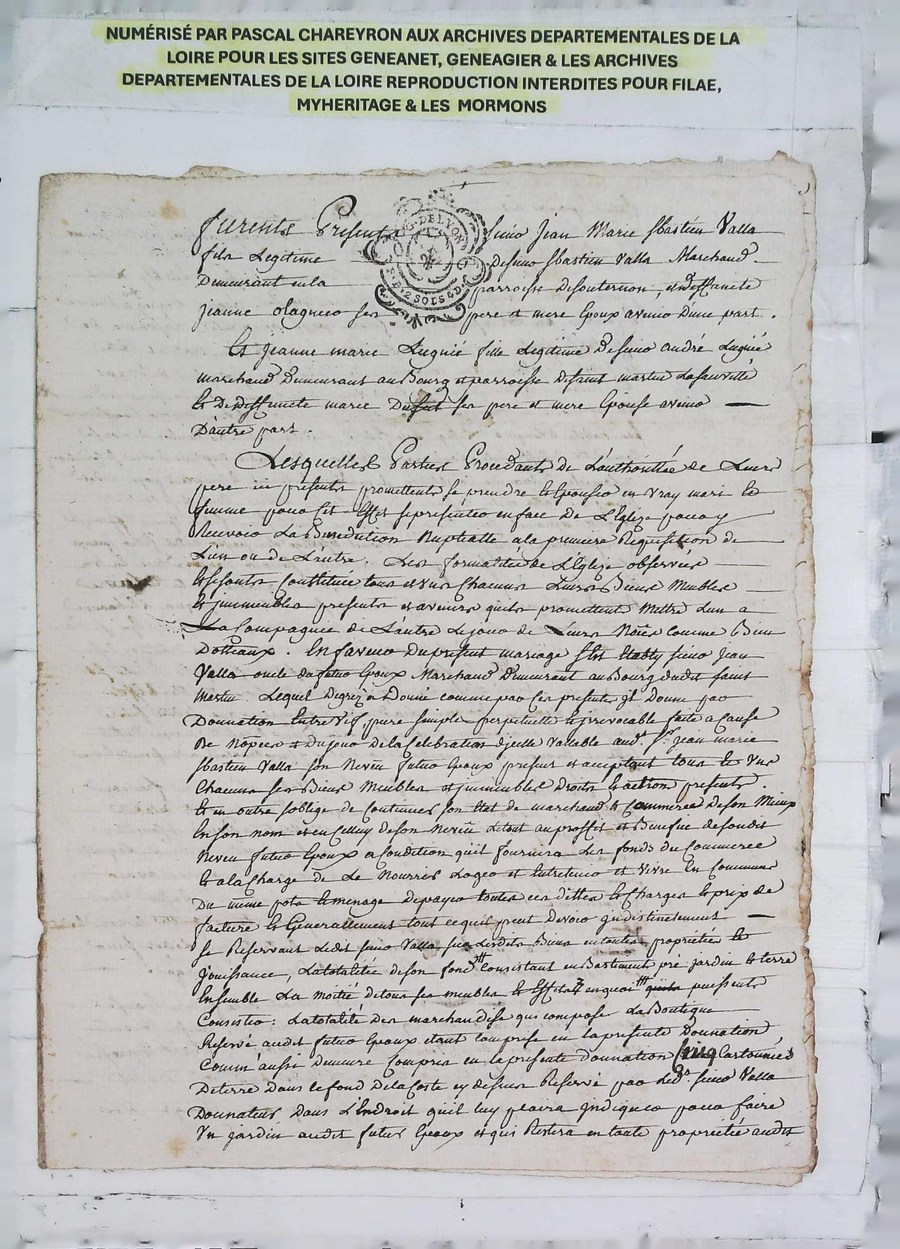 NUMÉRISÉ PAR PASCAL CHAREYRON AUX ARCHIVES DEPARTEMENTALES DE LA
LOIRE POUR LES SITES GENEANET, GENEAGIER & LES ARCHIVES
DEPARTEMENTALES DE LA LOIRE REPRODUCTION INTERDITES POUR FILAE,
MYHERITAGE & LES MORMONS
G. DE LYON
2 SOLS 6 D
furents Presents sieur Jean Marie sbastien Valla
fils Legitime de sieur sbastien Valla Marchand
Demeurant en la parroisse de souternon, et deffuncte
jeanne olagnier ses pere et mere Epoux avenir d'une part.
Et jeanne marie fille Legitime de sieur andré
marchand Demeurant au Bourg et parroisse de saint martin Lasauveté
Et De deffuncte marie ses pere et mere Epouse avenir
D'autre part.
Lesquelles Parties Procedants de L'authorittée de Leurs
pere ici presents promettents se prendre Et Epouser en vray mari Et
femme pour cet Effet se presenter en face de L'Eglize pour y
Recevoir La Benediction Nuptialle a la premiere Requisition de
L'un ou de L'autre. Les formalités de L'Eglize observées
se sonts Constituée tous et uns Chacuns Leurs Biens Meubles
Et jmmeubles presents et avenirs qu'ils promettent Mettre L'un a
La Compagnie de L'autre Le jour de Leurs Nôces comme Bien
Dottaux. En faveur Du présent mariage s'Est Etably sieur Jean
Valla oncle du futur Epoux Marchand Demeurant au Bourg dudit saint
Martin. Lequel De gré a Donné comme par Ces presente jl Donne par
Donnation Entre Vif, pure simple perpetuelle et jrrevocable faite a Cause
de Nôpces Du jour de la Célébration d'jcelle Vallable aud. Sr. jean marie
sbastien Valla son Neveu futur Epoux présent et acceptant tous Et Uns
Chacuns ses Biens Meubles et jmmeubles Droits Et action présents.
Et en outre s'oblige de Continuer son Etat de marchand & Commerce de son Mieux
En son nom et en Celluy de son Neveu Le tout au proffit et Benefice de son dit
Neveu futur Epoux a Condition qu'il fournira Les fonds du Commerce
Et a la Charge de Le Nourrir Loger et Entretenir et Vivre En Commun
Du même pots Et menage De payer toutes ces dittes Et Charges Et prix de
facture Et Generallement tout ce qui peut Devoir jndistinctement
se Réservant Ledit sieur Valla sur Lesdits Biens en toutte propriétée Et
Jouissance, La totalitée de son fond Consistant en Bastiment pré jardin Et terre
Ensemble La moitié de tous ses meubles Et Effets en quoi puissents
Consister: La totalité des marchandise qui compose La Boutique
Réservé audit futur Epoux étant comprise en la présente Donnation
Comm' aussi Demeure Compris en Le présente donnation Cinq Cartonnées
De terre Dans le fond De La Coste cy dessus Réservé par Led. sieur Valla
Donnateur Dans L'Endroit qu'il luy plaira jndiquer pour faire
Un jardin audit futur Epoux et qui Restera en toute propriettée audit